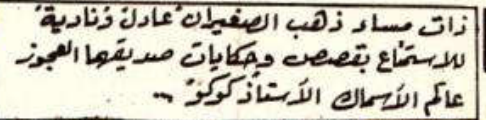 ذات مساء ذهب الصغيران "عادل ونادية"
للاستمتاع بقصص وحكايات صديقهما العجوز
عالم الأسماك الأستاذ كوكو ..